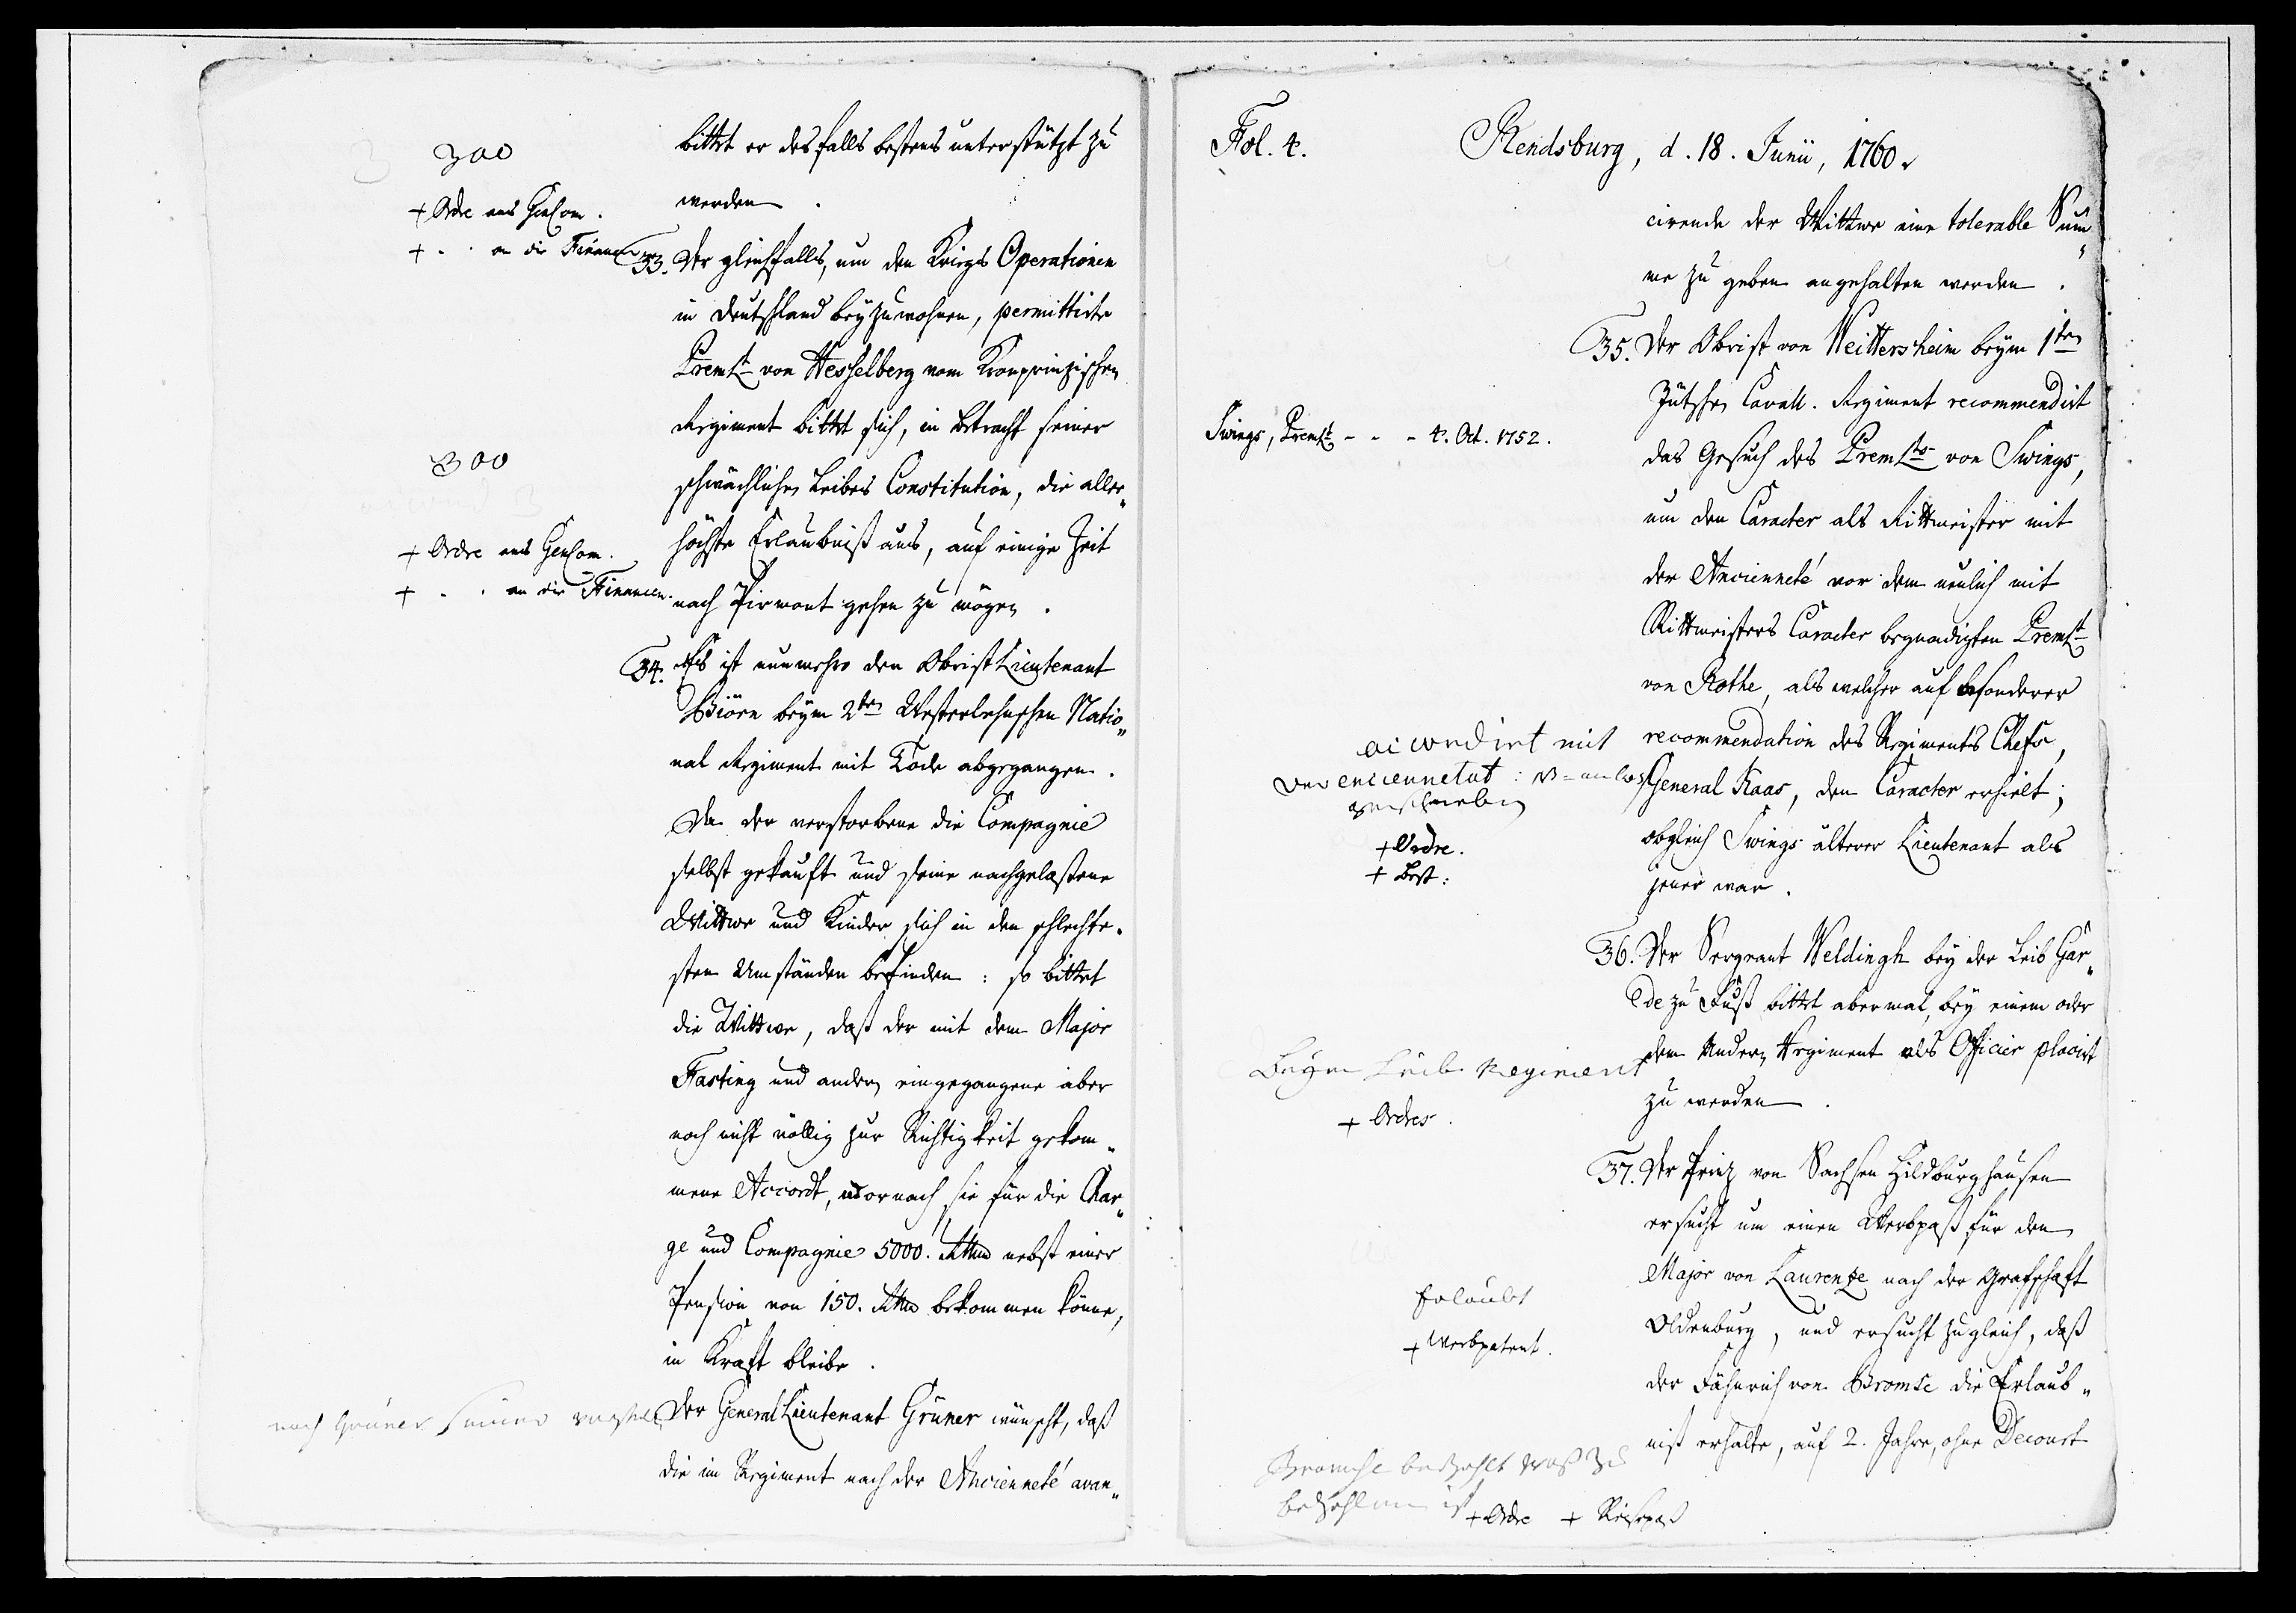 300
+ Ordre ans GenCom.
+ - - an die Financen
bittet er desfalls bestens unterstützt zu
werden.
33. Der gleichfalls, um den Kriegs Operationen
in Deutschland beyzuwohnen, permittirte
Premlt von Hesselberg vom Kronprinzischen
Regiment bittet sich, in Betracht seiner
schwächlichen Leibes Constitution, die aller„
höchste Erlaubniß aus, auf einige Zeit
nach Pirmont gehen zu mögen.
300
+ Ordre ans GenCom.
+ - - an die Financen.
34. Es ist nunmehro der ObristLieutenant
Biörn beym 2ten Westerlehnschen Natio„
nal Regiment mit Tode abgegangen.
Da der verstorbene die Compagnie
selbst gekauft und seine nachgelaßene
Wittwe und Kinder sich in den schlechte„
sten Umständen befinden: so bittet
die Wittwe, daß der mit dem Major
Fasting und andern eingegangene aber
noch nicht völlig zur Richtigkeit gekom„
mene Accordt, wornach sie für die Char„
ge und Compagnie 5000. Rthlr nebst einer
Pension von 150. Rthlr bekommen könne,
in Kraft bleibe.
nach Grüners
Der GeneralLieutenant Grüner wünscht, daß
die im Regiment nach der Ancienneté avan„
Fol. 4.
Rendsburg, d. 18. Junii, 1760.
cirende der Wittwe eine tolerable Sum„
me zu geben angehalten werden.
35. Der Obrist von Weittersheim beym 1ten
Jütschen Cavall. Regiment recommendirt
das Gesuch des Premlts von Swings,
um den Caracter als Rittmeister mit
der Ancienneté vor dem neulich mit
Rittmeisters Caracter begnadigten Premlt
von Rothe, als welcher auf besonderer
recommendation des Regiments Chefs,
General Kaas, den Caracter erhielt;
obgleich Swings älterer Lieutenant als
jener war.
Swings, Premlt - - - 4. Oct. 1752.
accordirt mit
der enciennetät
+ Ordre.
+ Best:
36. Der Sergeant Weldingh bey der Leib Gar„
de zu Fuß bittet abermal, bey einem oder
dem Andern Regiment als Officier placirt
zu werden.
Beym Leib Regiment
+ Ordres.
37. Der Prinz von Sachsen Hildburghausen
ersucht um einen Werbpaß für den
Major von Laurenze nach der Grafschaft
Oldenburg, und ersucht zugleich, daß
der Fähnrich von Bromse die Erlaub„
niß erhalte, auf 2. Jahre, ohne Decourt
Erlaubt
+ Werbpatent.
Bromse bezahlt was zu
bezahlen ist
+ Ordre + Reisepaß